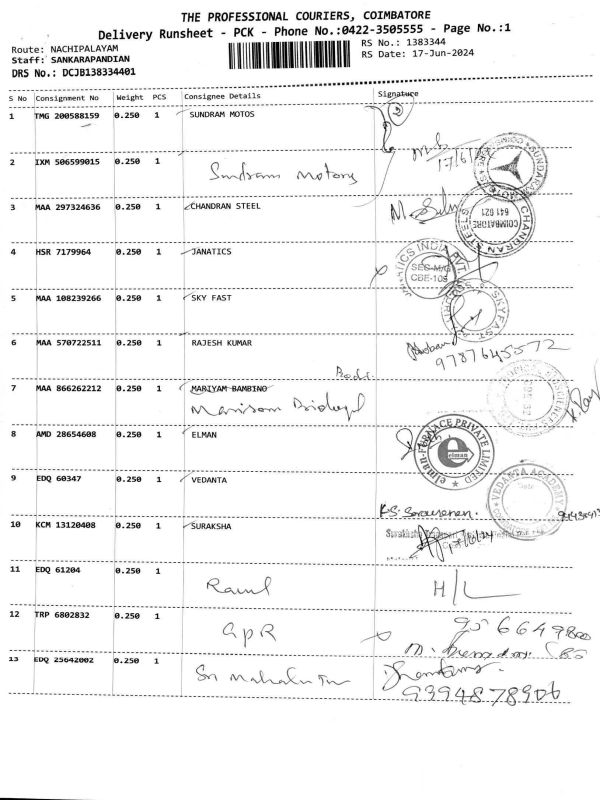 THE PROFESSIONAL COURIERS, COIMBATORE
Delivery Runsheet - PCK - Phone No.:0422-3505555 - Page No.:1
Route: NACHIPALAYAM
RS No.: 1383344
Staff: SANKARAPANDIAN
RS Date: 17-Jun-2024
DRS No.: DCJB138334401
S No Consignment No Weight PCS Consignee Details Signature
1 TMG 200588159 0.250 1 SUNDRAM MOTOS
17/6/
2 IXM 506599015 0.250 1 Sundram Motors
3 MAA 297324636 0.250 1 CHANDRAN STEEL
CHANDRAN STEELS COIMBATORE 641 021
4 HSR 7179964 0.250 1 JANATICS
INDIA PVT
CBE-109
5 MAA 108239266 0.250 1 SKY FAST
SKYFAST
6 MAA 570722511 0.250 1 RAJESH KUMAR
9787645572
7 MAA 866262212 0.250 1 MARIYAM BAMBINO
8 AMD 28654608 0.250 1 ELMAN
elman-FURNACE PRIVATE LIMITED
elman
9 EDQ 60347 0.250 1 VEDANTA
VEDANTA ACADEMY
Date
K.S. Saravanan.
10 KCM 13120408 0.250 1 SURAKSHA
11 EDQ 61204 0.250 1
H/L
12 TRP 6802832 0.250 1 GPR
13 EDQ 25642002 0.250 1
9394878906